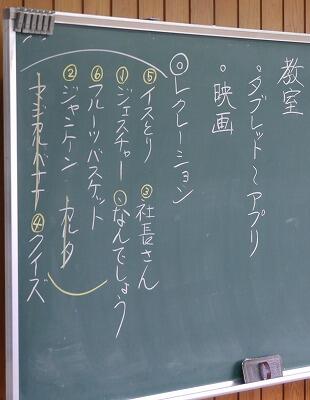 教室
・タブレット〜アプリ
・映画
◎レクレーション
⑤イスとり ③社長さん
①ジェスチャー なんでしょう
⑥フルーツバスケット
②ジャンケーン カルタ
マジカルバナナ ④クイズ